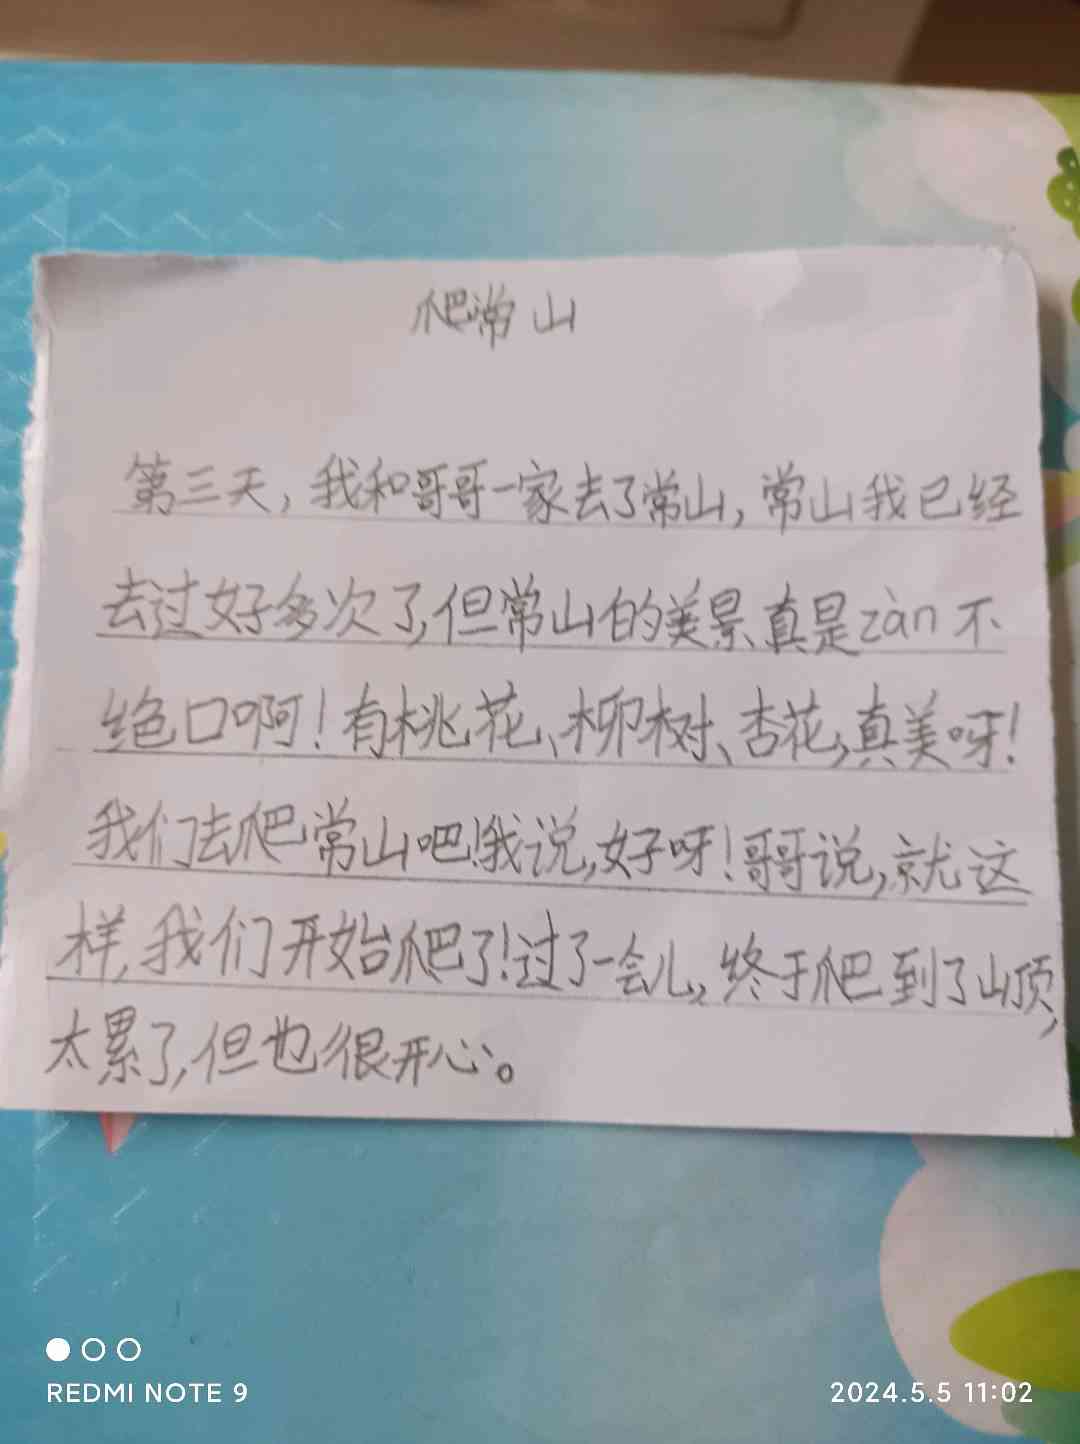 爬常山
第三天，我和哥哥一家去了常山，常山我已经
去过好多次了，但常山的美景真是zàn不
绝口啊！有桃花、柳树、杏花，真美呀！
我们去爬常山吧！我说，好呀！哥哥说，就这
样，我们开始爬了！过了一会儿，终于爬到了山顶，
太累了，但也很开心。
REDMI NOTE 9
2024.5.5 11:02